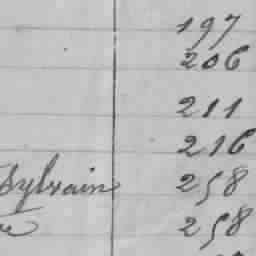 197
206
211
216
Sylvain 258
258